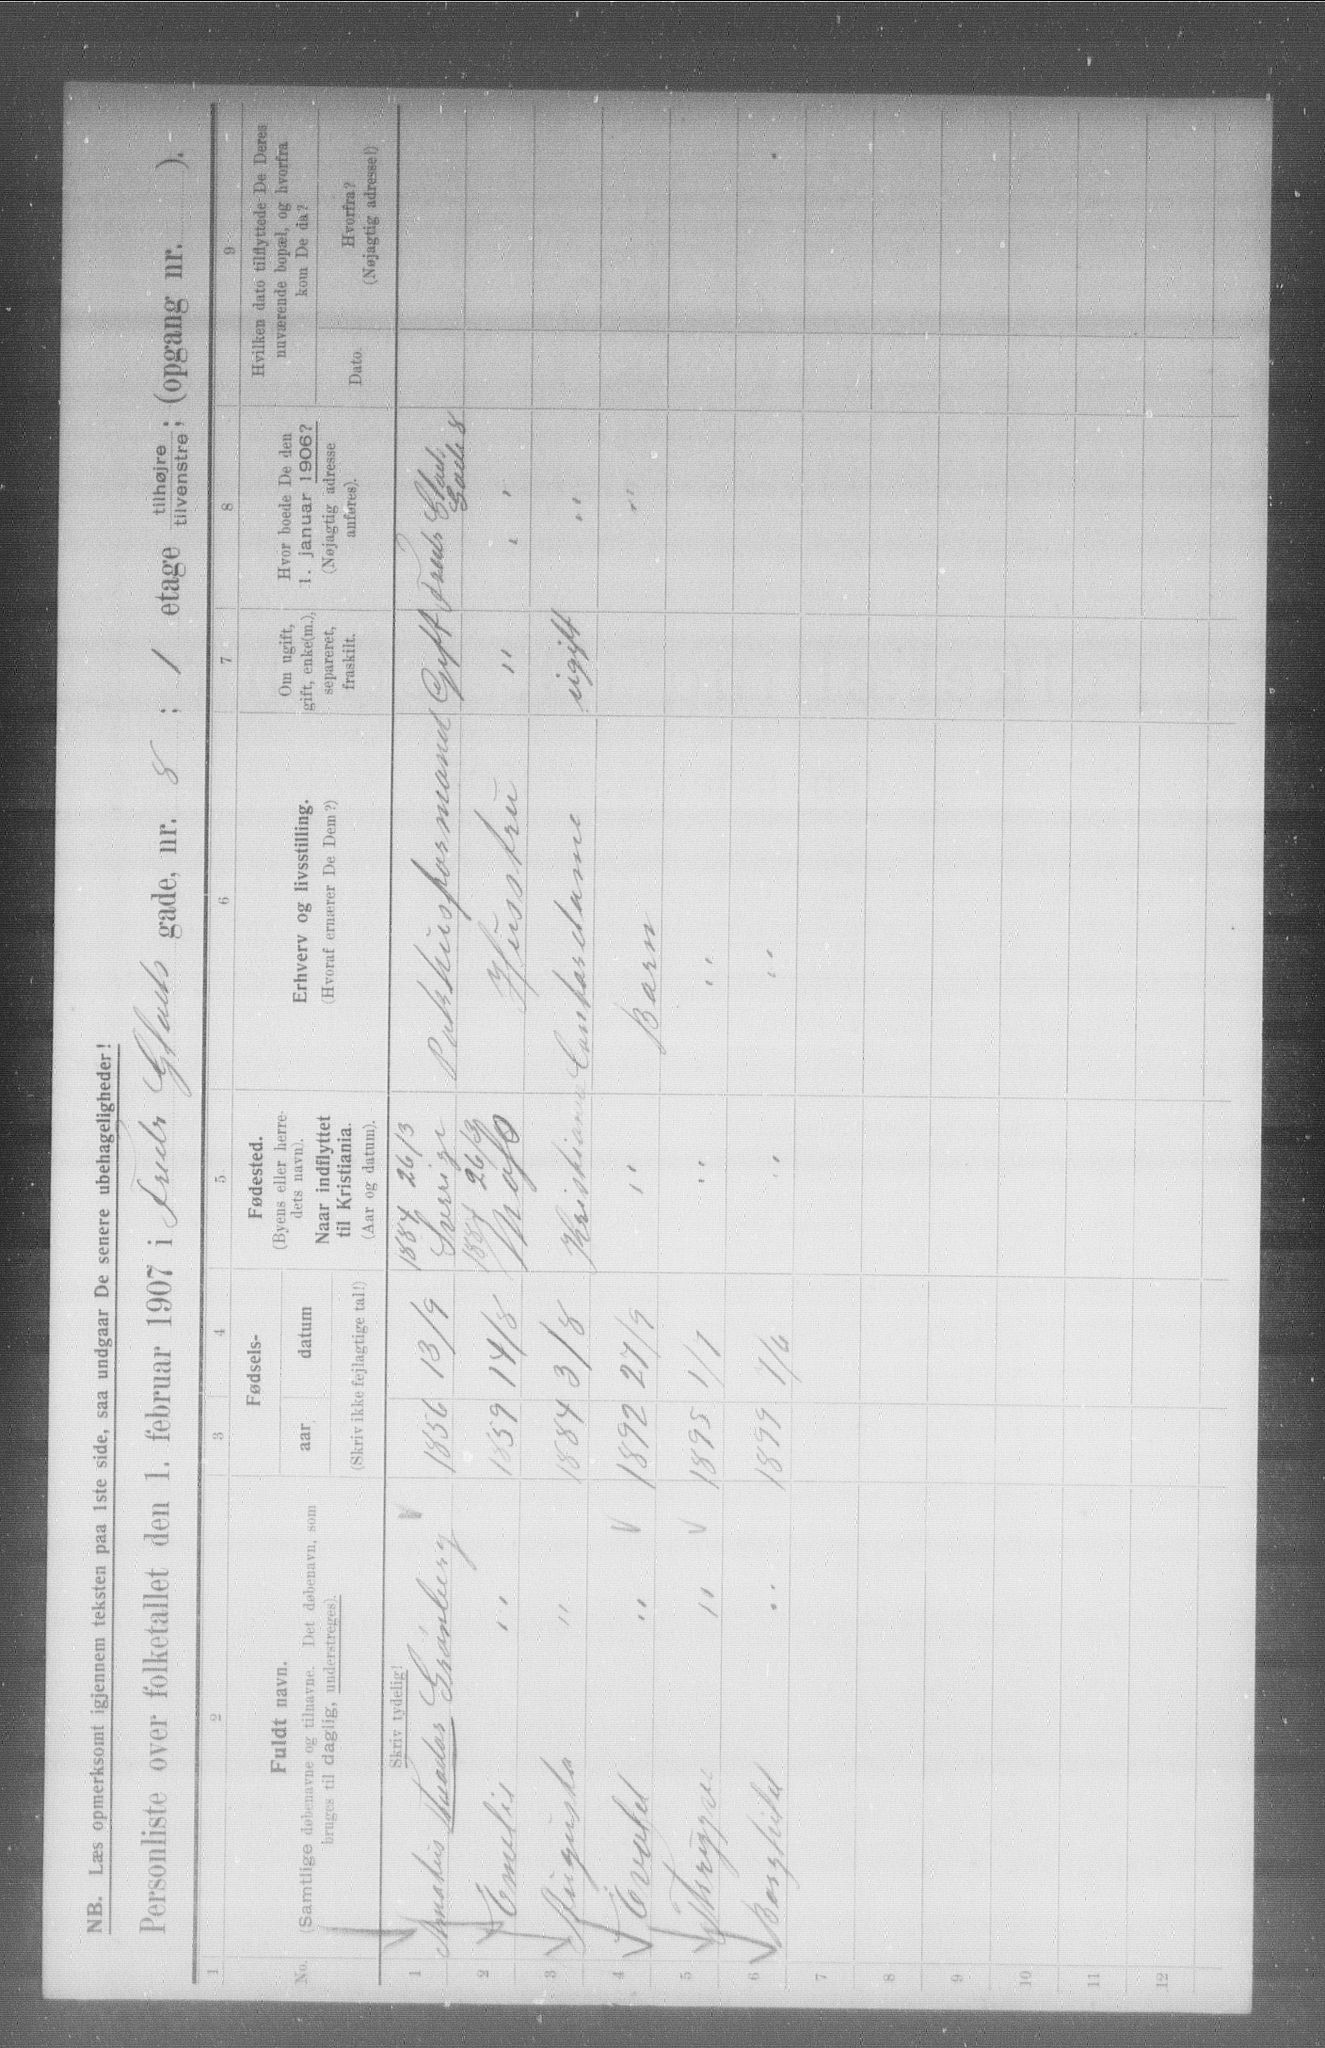 NB. Læs opmerksomt igjennem teksten paa 1ste side, saa undgaar De senere ubehageligheder!
Personliste over folketallet den 1. februar 1907 i Fred. Glads gade, nr. 8; 1 etage tilhøjre tilvenstre; (opgang nr. ).
1 2 3 4 5 6 7 8 9
No.
Fuldt navn.
(Samtlige døbenavne og tilnavne. Det døbenavn, som
bruges til daglig, understreges).
Fødsels-
aar datum
(Skriv ikke fejlagtige tal!)
Fødested.
(Byens eller herre-
dets navn).
Naar indflyttet
til Kristiania.
(Aar og datum).
Erhverv og livsstilling.
(Hvoraf ernærer De Dem?)
Om ugift,
gift, enke(m.),
separeret,
fraskilt.
Hvor boede De den
1. januar 1906?
(Nøjagtig adresse
anføres).
Hvilken dato tilflyttede De Deres
nuværende bopæl, og hvorfra
kom De da?
Dato.
Hvorfra?
(Nøjagtig adresse!)
Skriv tydelig!
1 Grönberg 1856 13/9 1884 26/3 Sverige Pakhusformand Gift Fred. Glads Gade 8
2 Emelie " 1859 14/8 1884 26/3 Husfru " " "
3 Augusta " 1884 3/8 Kristiania ugift " "
4 Evald " 1892 27/9 " Barn " "
5 " 1895 1/7 " "
6 Borghild " 1899 7/6 " "
7
8
9
10
11
12